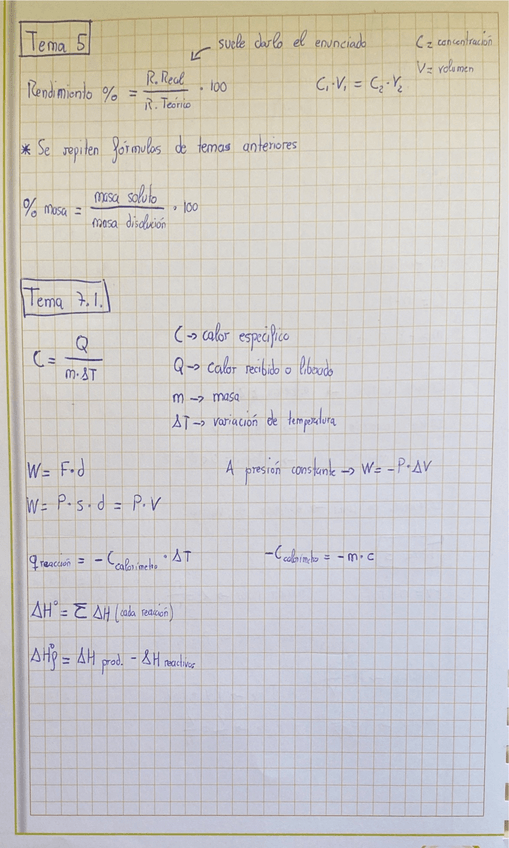 Tema 5
suele darlo el enunciado
C = concentración
V = volumen
Rendimiento % = R. Real / R. Teórico · 100
C₁·V₁ = C₂·V₂
* Se repiten fórmulas de temas anteriores
% masa = masa soluto / masa disolución · 100
Tema 7.1.
C = Q / m·ΔT
C → calor especifico
Q → calor recibido o liberado
m → masa
ΔT → variación de temperatura
W = F·d
A presión constante → W = -P·ΔV
W = P·s·d = P·V
q reacción = -C calorimetro · ΔT
-C calorimetro = -m·c
ΔH° = Σ ΔH (cada reacción)
ΔH°f = ΔH prod. - ΔH reactivos